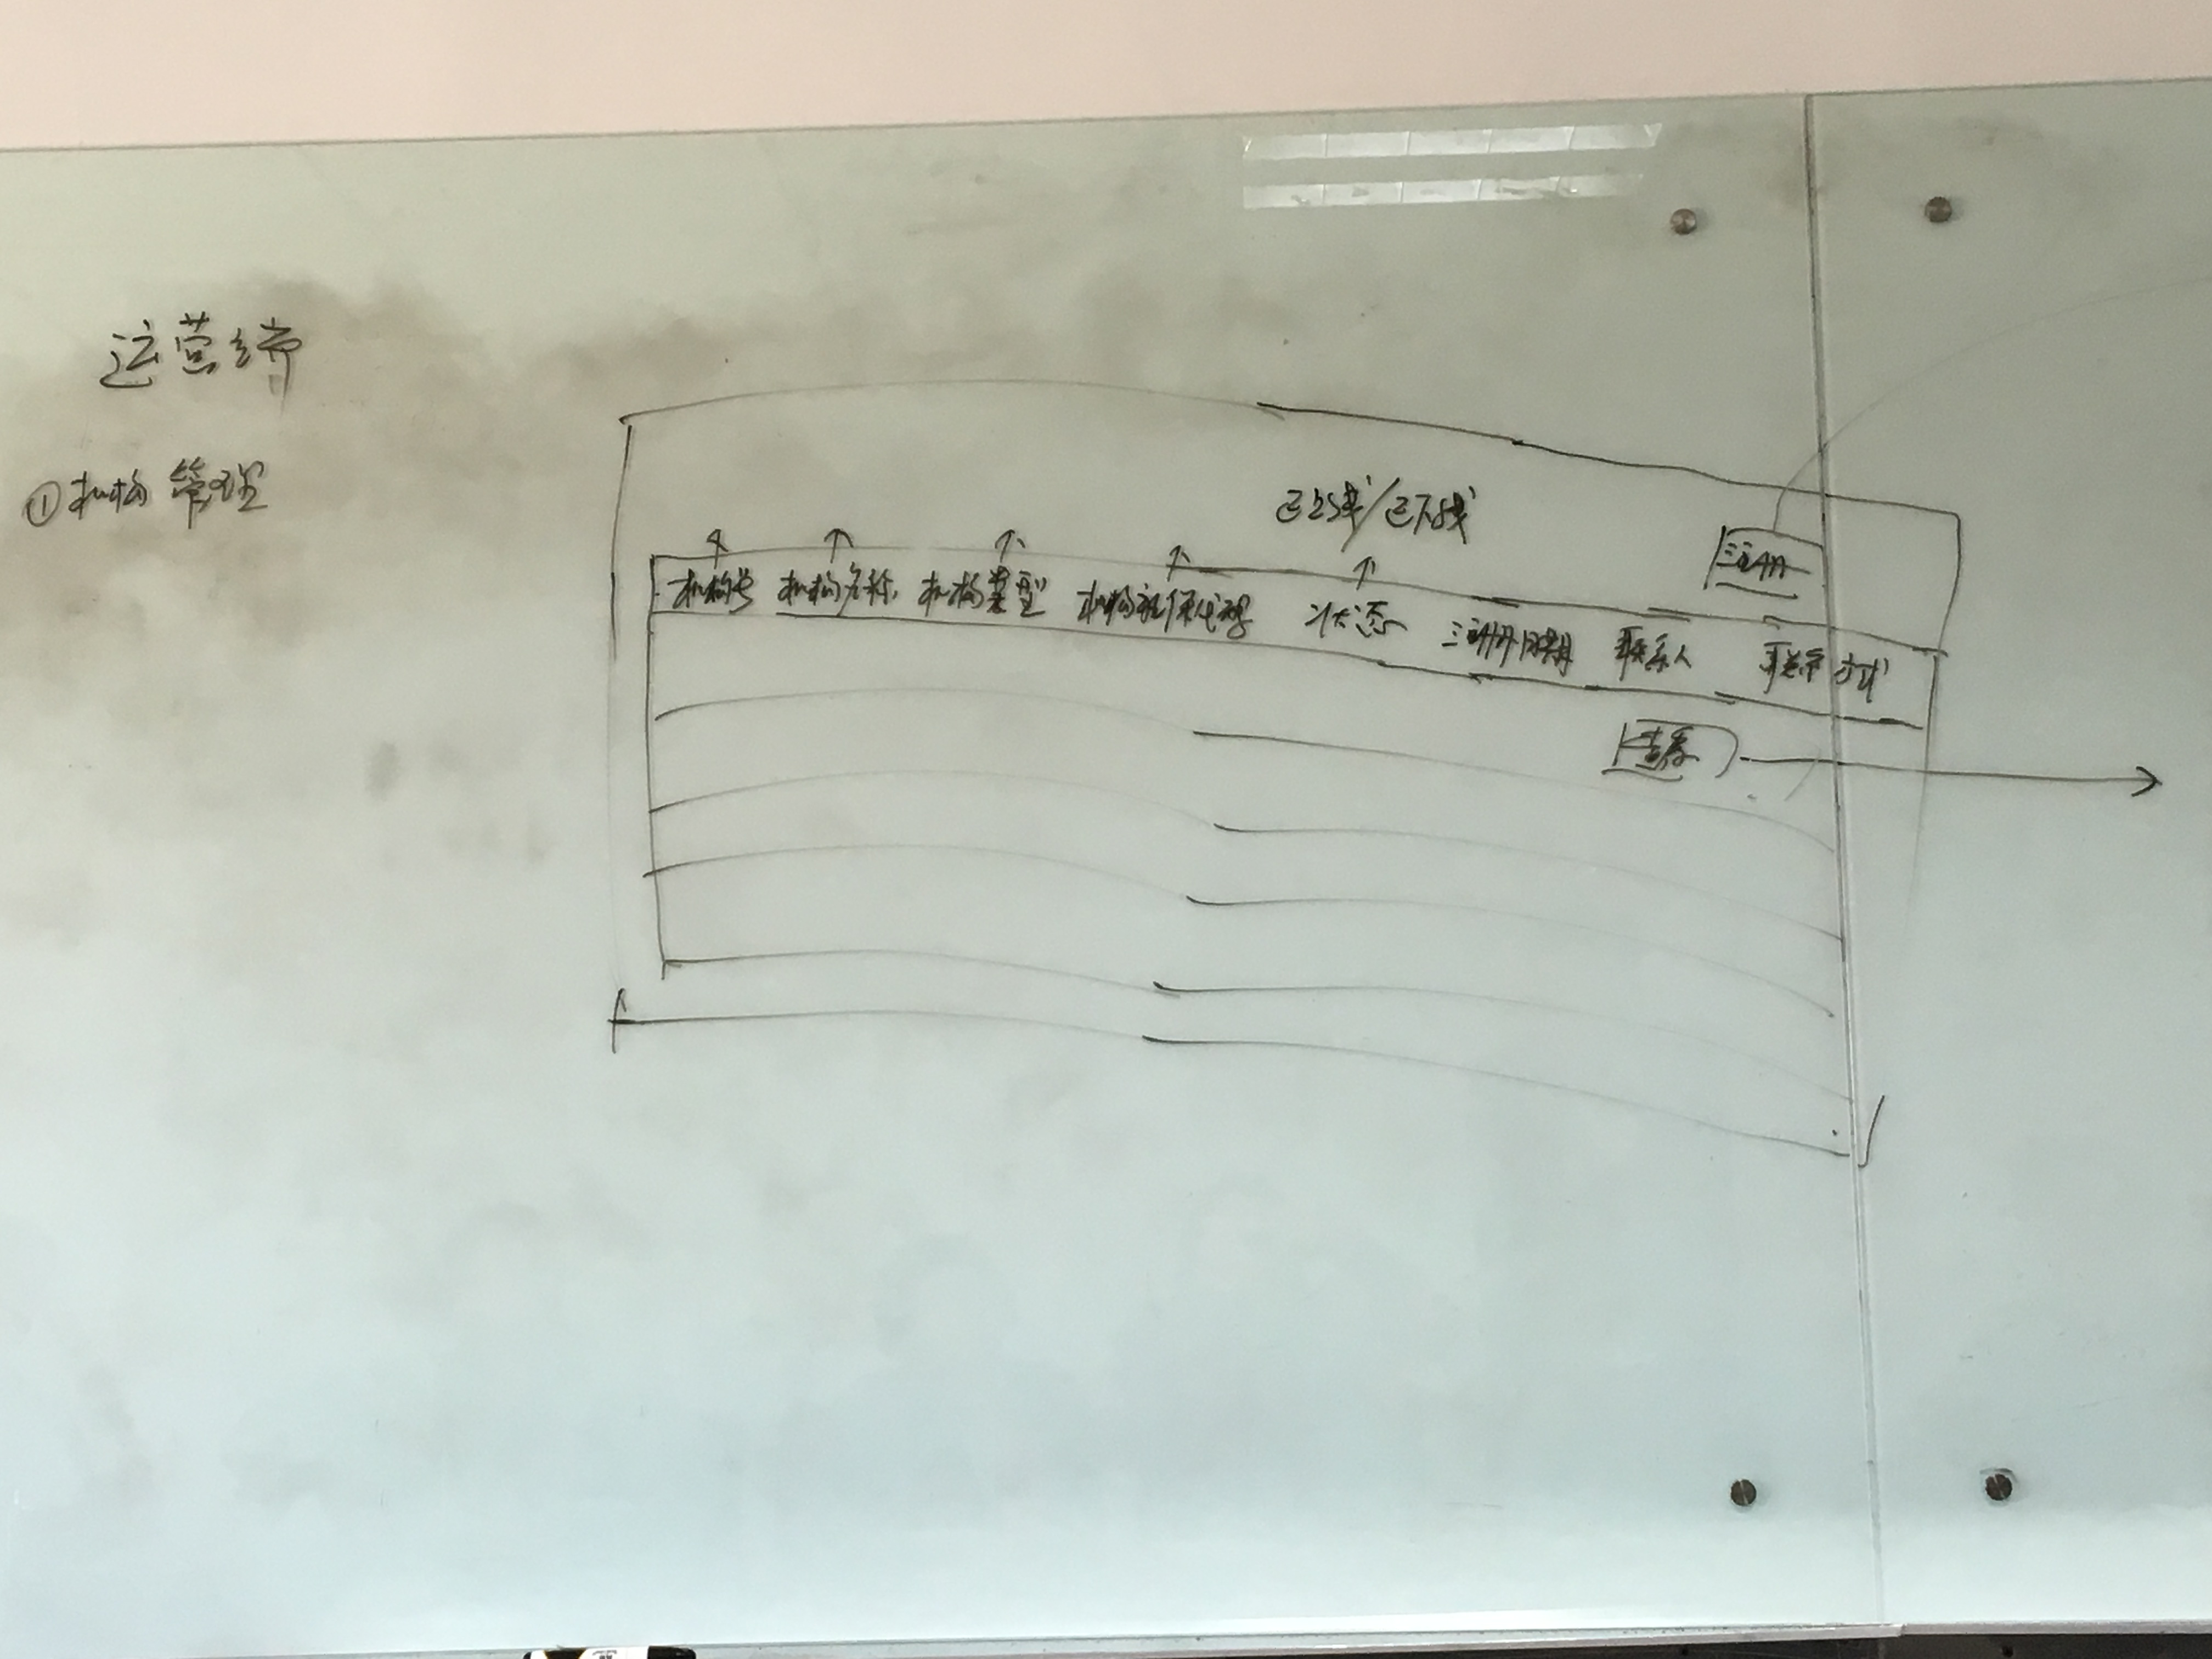 运营端
①机构管理
已上线/已下线
注册
机构号 机构名称 机构类型 机构社保代码 状态 注册日期 联系人 联系方式
查看